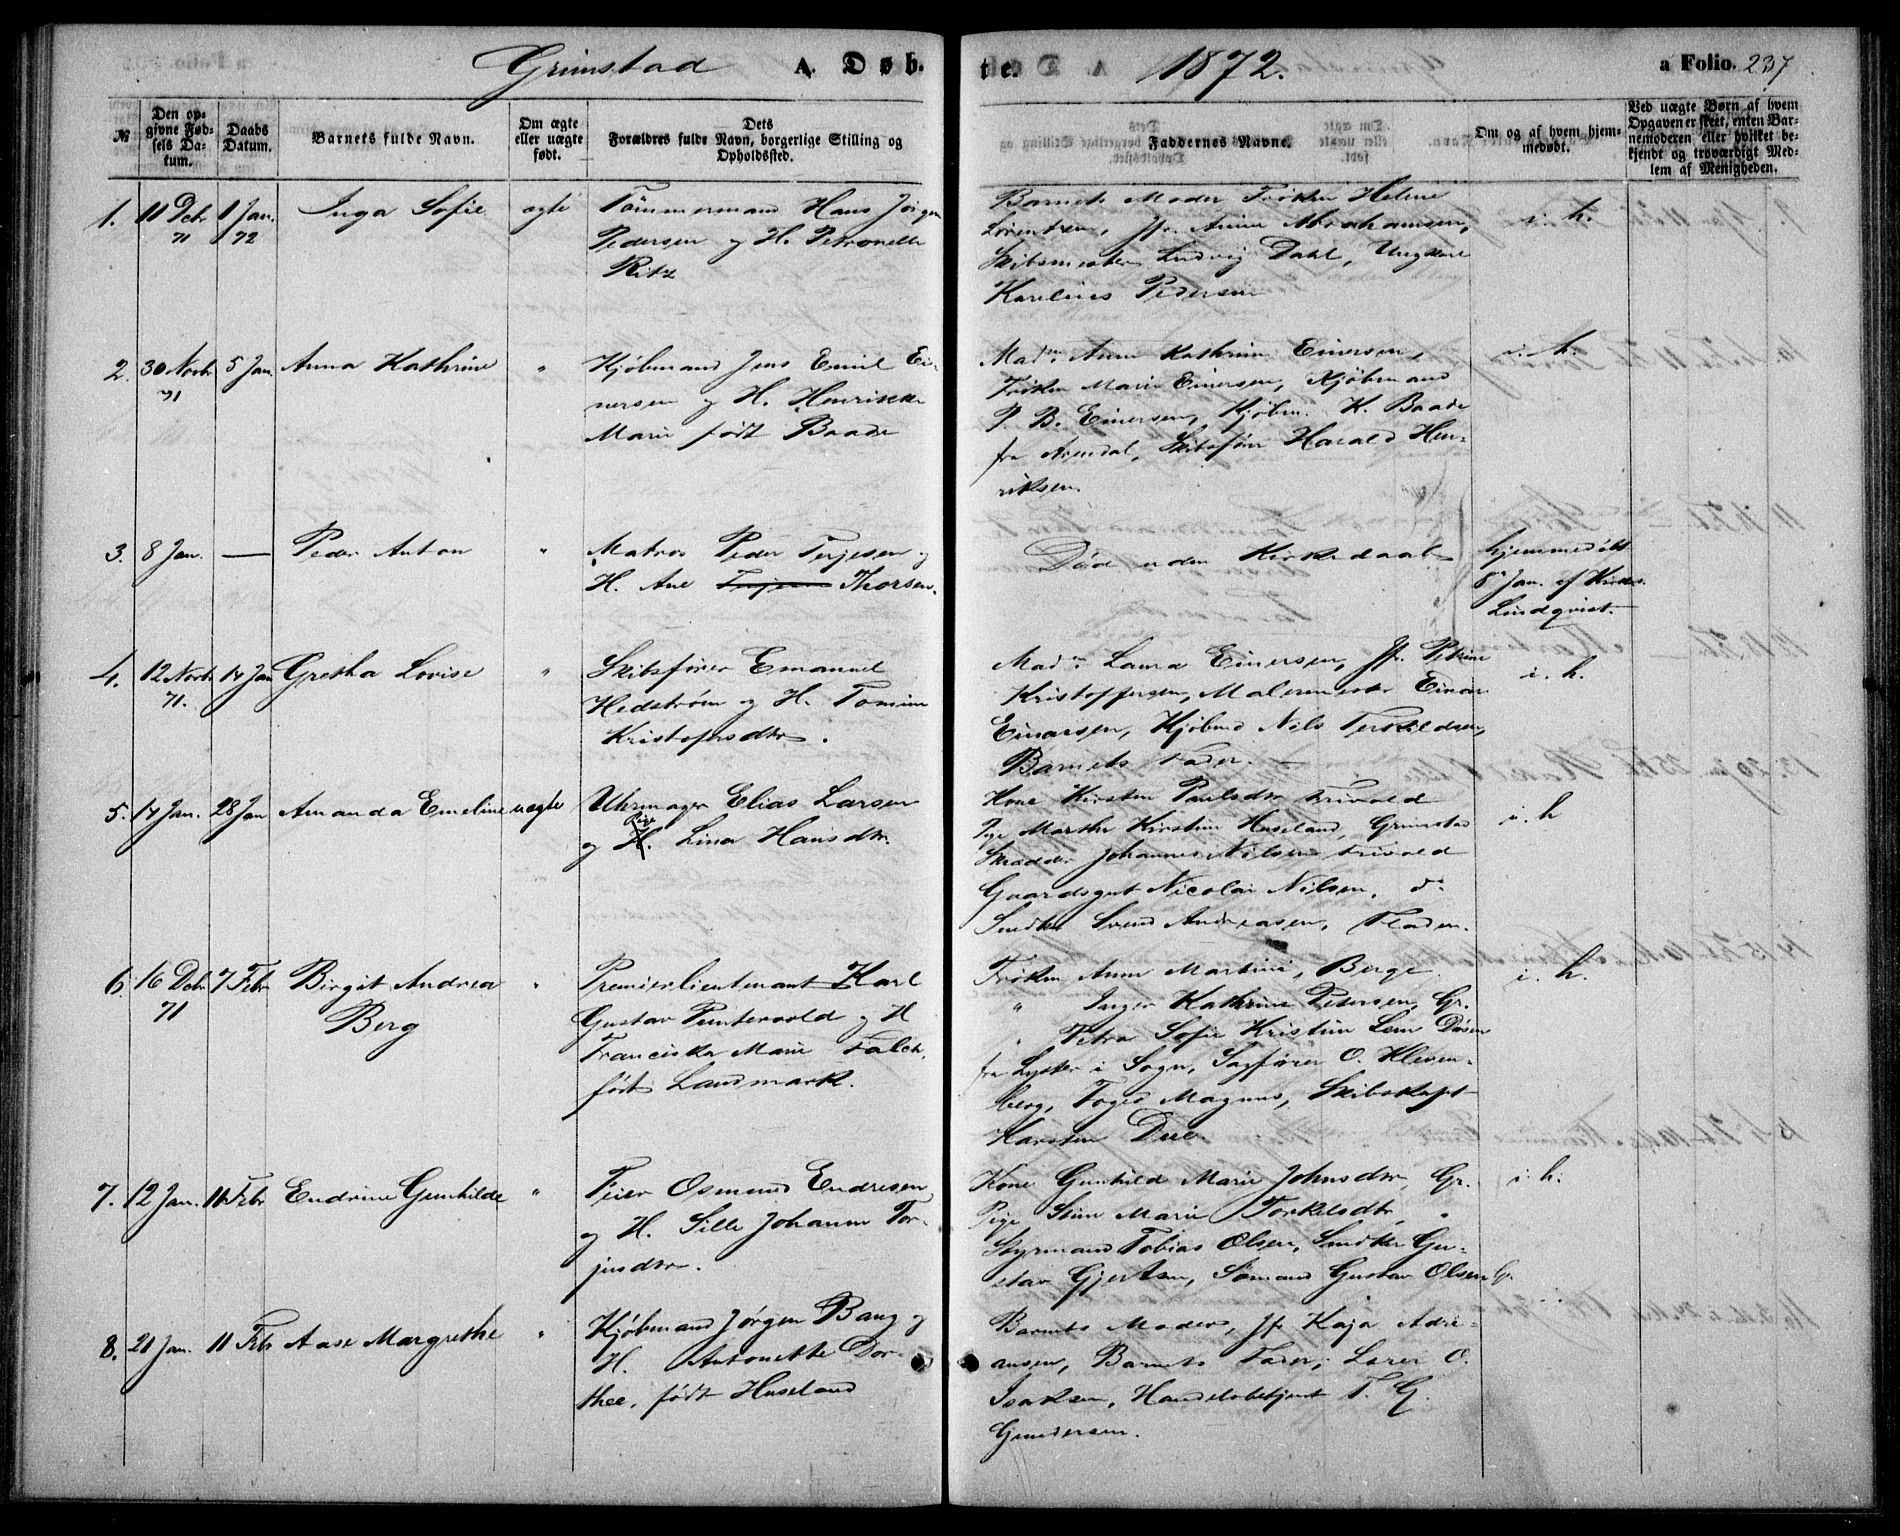 Grimstad A. Døb- te. 1872. a Folio. 237
№
Den opgivne Fødsels Datum.
Daabs Datum.
Barnets fulde Navn.
Om ægte eller uægte født.
Dets Forældres fulde Navn, borgerlige Stilling og Opholdssted.
Faddernes Navne.
Om og af hvem hjemmedøbt.
Ved uægte Børn af hvem Opgaven er skeet, enten Barnemoderen eller hvilket bekjendt og troværdigt Medlem af Menigheden.
1. 11 Dcbr 71 1 Jan. 72 Inga Sofie ægte
Tømmermand Hans Jørgen
Pedersen og H. Petronelle
Ritz
Barnets Moder Frøken Helene
Lorentzen, Jfr. Anne Abrahamsen,
Skibsmester Ludvig Dahl, Ungkarl
Karelius Pedersen
i. h.
2. 30 Novbr. 71 5 Jan. Anna Kathrine "
Kjøbmand Jens Emil Ei-
nersen og H. Henrikke
Marie født Baade
Madm Anne Kathrine Einersen,
Frøken Marie Einersen, Kjøbmand
P. B. Einersen, Kjøbm. K. Baade
fra Arendal, Skibsfører Harald Hen-
riksen.
i. h.
3. 8 Jan. — Peder Anton "
Matros Peder Terjesen og
H. Ane Terjesen Thorsen.
Død uden Kirkedaab
hjemmedøbt
8 Jan. af Kirkes.
Lindqvist.
4. 12 Novbr. 71. 14 Jan Gretha Lovise "
Skibsfører Emanuel
Hedstrøm og H. Tomine
Kristofersdtr.
Madm Laura Einersen, Jfr. Petrine
Kristoffersen, Malermester Einar
Einarsen, Kjøbmd Nils Terkildsen,
Barnets Fader.
i. h.
5. 14 Jan. 28 Jan Amanda Emeline uægte
Uhrmager Elias Larsen
og H. Pige Lina Hansdtr.
Kone Kirsten Paulsdtr Frivold
Pige Marthe Kirstine Huseland, Grimstad
Skrædder Johannes Nilsen Frivold
Gaardsgut Nicolai Nilsen, do
Smedker Svend Andreasen, Fladen.
i. h
6. 16 Dcbr 71 7 Febr Birgit Andrea "
Berg
Premierlieutenant Karl
Gustav Puntervold og H
Franciska Marie Falch,
født Landmark.
Frøken Anne Martine, Berge
" Inger Kathrine Petersen, Gr.
" Petra Sofie Kristine Lem Døsen
fra Lyster i Sogn, Sagfører O. Kleven-
berg, Foged Magnus, Skibskapt
Karsten Due
i. h.
7. 12 Jan. 11 Febr Endrine Gunhilde "
Feier Osmund Endresen
og H. Sille Johanne Tor-
jusdtr.
Kone Gunhild Marie Johnsdtr, Gr.
Pige Stine Marie Torkelsdtr "
Styrmand Tobias Olsen, Smedker Gu-
stav Gjertsen, Sømand Gustav Olsen Gr.
i. h.
8. 21 Jan. 11 Febr Aase Margrethe "
Kjøbmand Jørgen Bang og
H. Antonette Dor-
thee, født Huseland
Barnets Moder, Jfr Kaja Adri-
ansen, Barnets Fader, Lærer O.
Isaksen, Handelsbetjent T. G.
Gundersen.